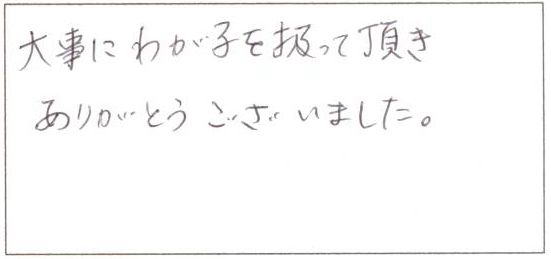 大事にわが子を扱って頂き
ありがとうございました。